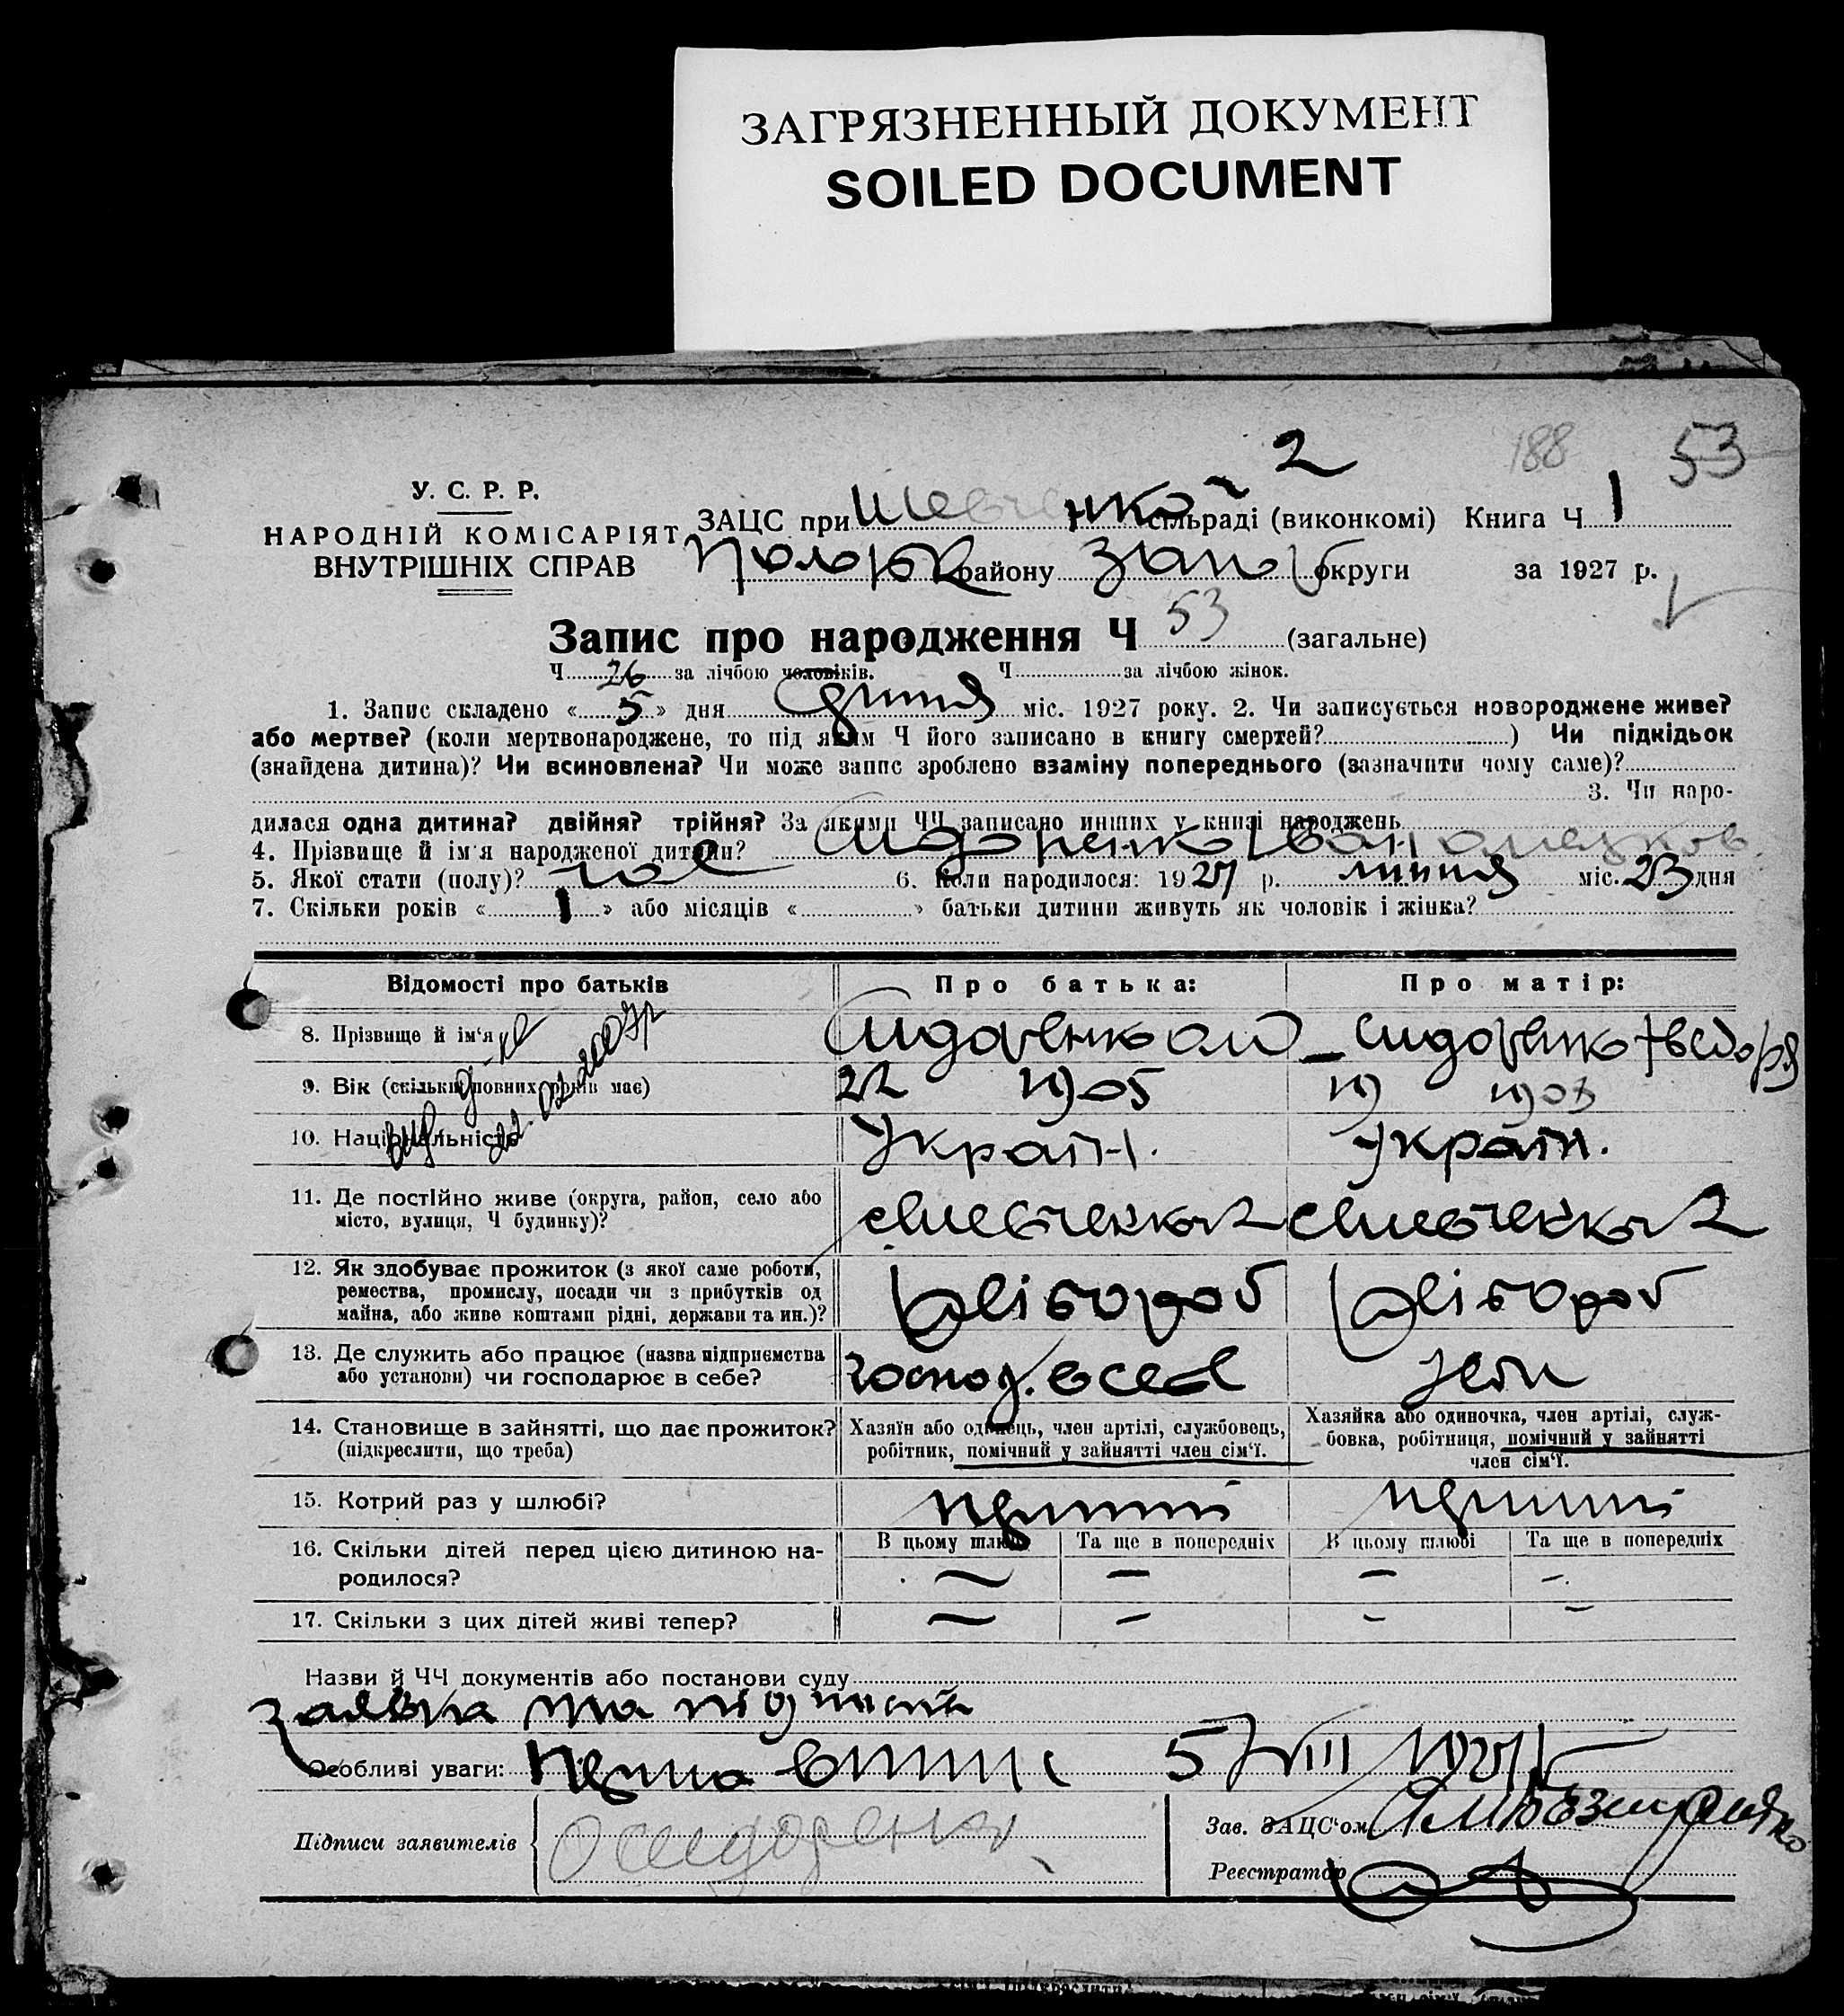 ЗАГРЯЗНЕННЫЙ ДОКУМЕНТ
SOILED DOCUMENT
2 188 53
У. С. Р. Р.
НАРОДНІЙ КОМІСАРІЯТ
ВНУТРІШНІХ СПРАВ
ЗАЦС при Шевченко сільраді (виконкомі) Книга Ч 1
району округи за 1927 р.
Запис про народження Ч 53 (загальне)
Ч 26 за лічбою чоловіків. Ч за лічбою жінок.
1. Запис складено « 5 » дня міс. 1927 року. 2. Чи записується новороджене живе?
або мертве? (коли мертвонароджене, то під яким Ч його записано в книгу смертей? ) Чи підкідьок
(знайдена дитина)? Чи всиновлена? Чи може запис зроблено взаміну попереднього (зазначити чому саме)?
3. Чи наро-
дилася одна дитина? двійня? трійня? За якими ЧЧ записано инших у книзі народжень
4. Прізвище й ім'я народженої дитини? Сидоренко Іван
5. Якої стати (полу)? чол 6. Коли народилося: 1927 р. липня міс. 23 дня
7. Скільки років « 1 » або місяців « » батьки дитини живуть як чоловік і жінка?
Відомості про батьків Про батька: Про матір:
8. Прізвище й ім'я Сидоренко Сидоренко
9. Вік (скільки повних років має) 22 1905 19
10. Національність Україн. Україн.
11. Де постійно живе (округа, район, село або
місто, вулиця, Ч будинку)? с Шевченко 2 с Шевченко 2
12. Як здобуває прожиток (з якої саме роботи,
ремества, промислу, посади чи з прибутків од
майна, або живе коштами рідні, держави та ин.)? хлібороб хлібороб
13. Де служить або працює (назва підприємства
або установи) чи господарює в себе? господ. в себе
14. Становище в зайнятті, що дає прожиток?
(підкреслити, що треба)
Хазяїн або одинець, член артілі, службовець,
робітник, помічний у зайнятті член сім'ї.
Хазяйка або одиночка, член артілі, служ-
бовка, робітниця, помічний у зайнятті
член сім'ї.
15. Котрий раз у шлюбі?
16. Скільки дітей перед цією дитиною на-
родилося?
В цьому шлюбі Та ще в попередніх В цьому шлюбі Та ще в попередніх
— — — —
17. Скільки з цих дітей живі тепер? — — — —
Назви й ЧЧ документів або постанови суду
заявка та
Особливі уваги: 5/VIII 1927
Підписи заявителів О Сидоренко
Зав. ЗАЦС'ом
Реєстратор